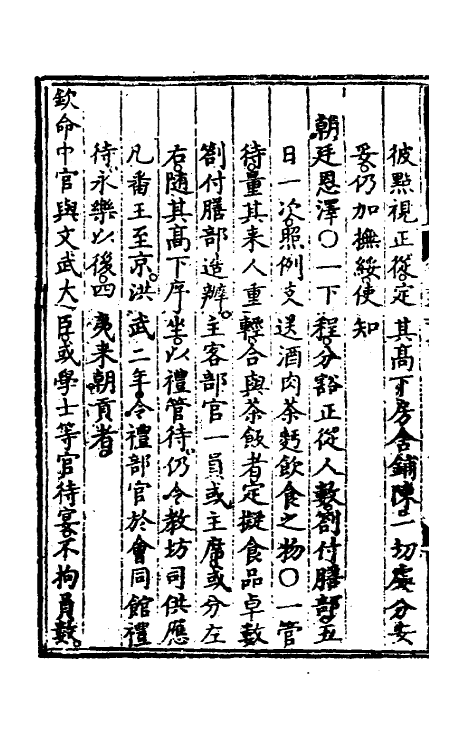 彼點視正從定其高下房舍鋪陳一切處分妄
妥仍加撫綏使知
朝廷恩澤〇一下程分豁正從人數劄付膳部五
日一次照例支送酒肉茶麪飲食之物〇一管
待量其来人重輕合與茶飯者定擬食品卓數
劄付膳部造辦主客部官一員或主席或分左
右隨其高下序坐以禮管待仍令教坊司供應
凡番王至京洪武二年令禮部官於會同館禮
待永樂以後四夷来朝貢者
欽命中官與文武大臣或學士等官待宴不拘員數